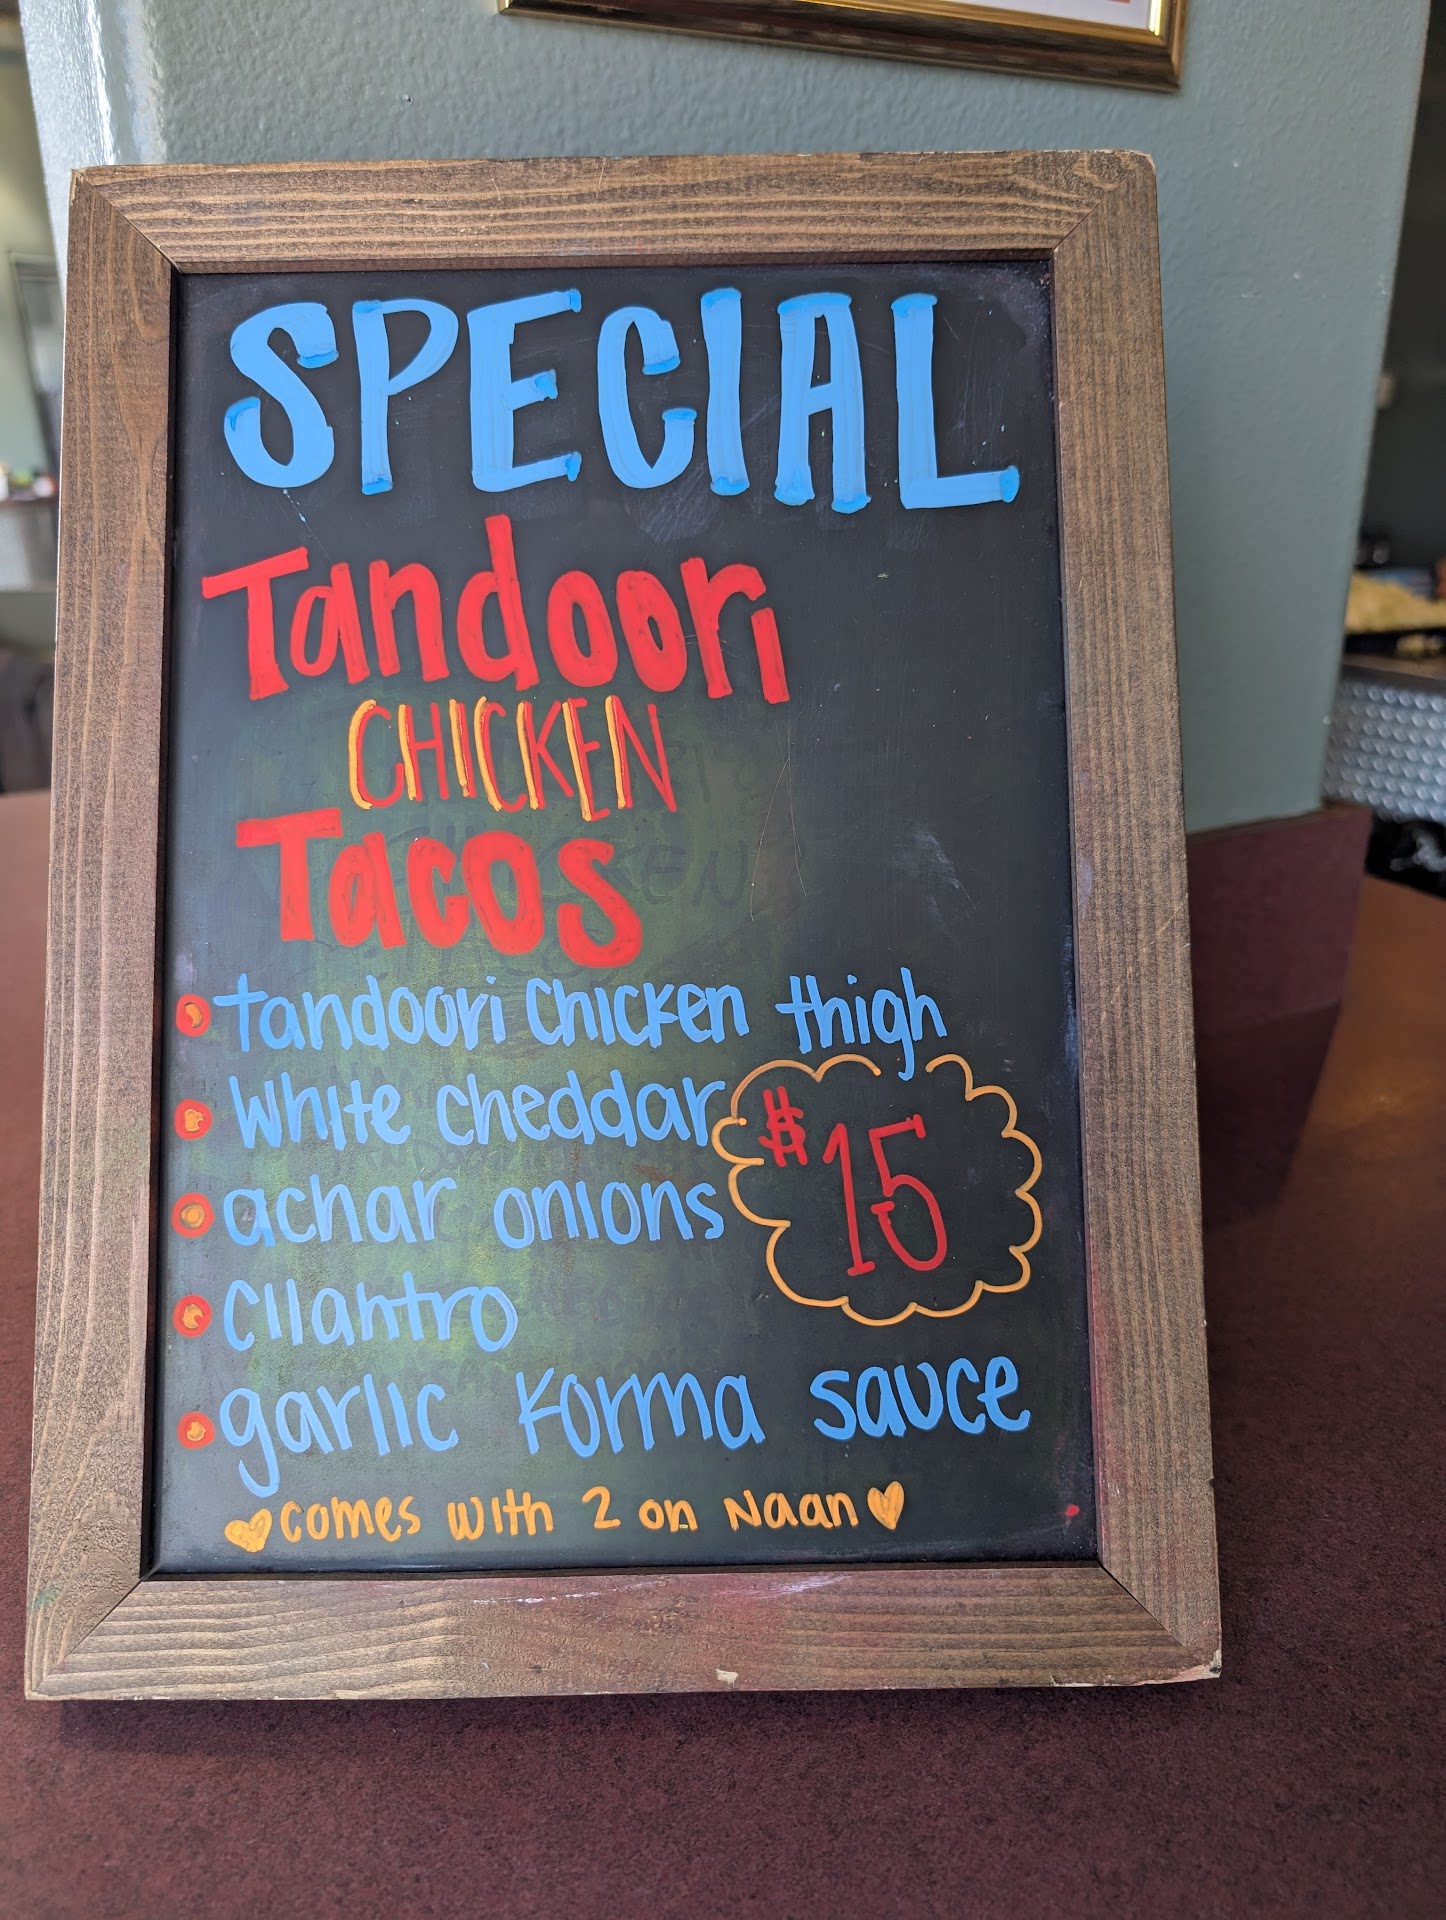 SPECIAL
Tandoori
CHICKEN
Tacos
tandoori chicken thigh
white cheddar
$15
achar onions
cilantro
garlic korma sauce
comes with 2 on Naan